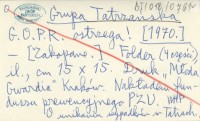 Grupa Tatrzańska
G.O.P.R. ostrzega! [1970.]
– [Zakopane.] Folder (4 części)
il., cm 15 x 15. Druk „Młoda
Gwardia" Kraków. Nakładem fun-
duszu prewencyjnego PZU.
O unikaniu wypadków w Tatrach.